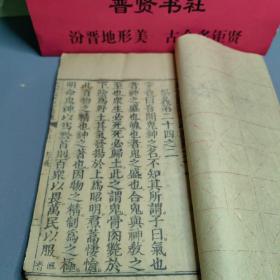 普贤书社
汾晋地形美 古今多钜贤
祭義第二十四之二
宰我曰吾聞鬼神之名不知其所謂子曰氣也
者神之盛也魄也者鬼之盛也合鬼與神教之
至也衆生必死死必歸土此之謂鬼骨肉斃於
下陰爲野土其氣發揚於上爲昭明焄蒿悽愴
此百物之精也神之著也因物之精制爲之極
明命鬼神以爲黔首則百衆以畏萬民以服